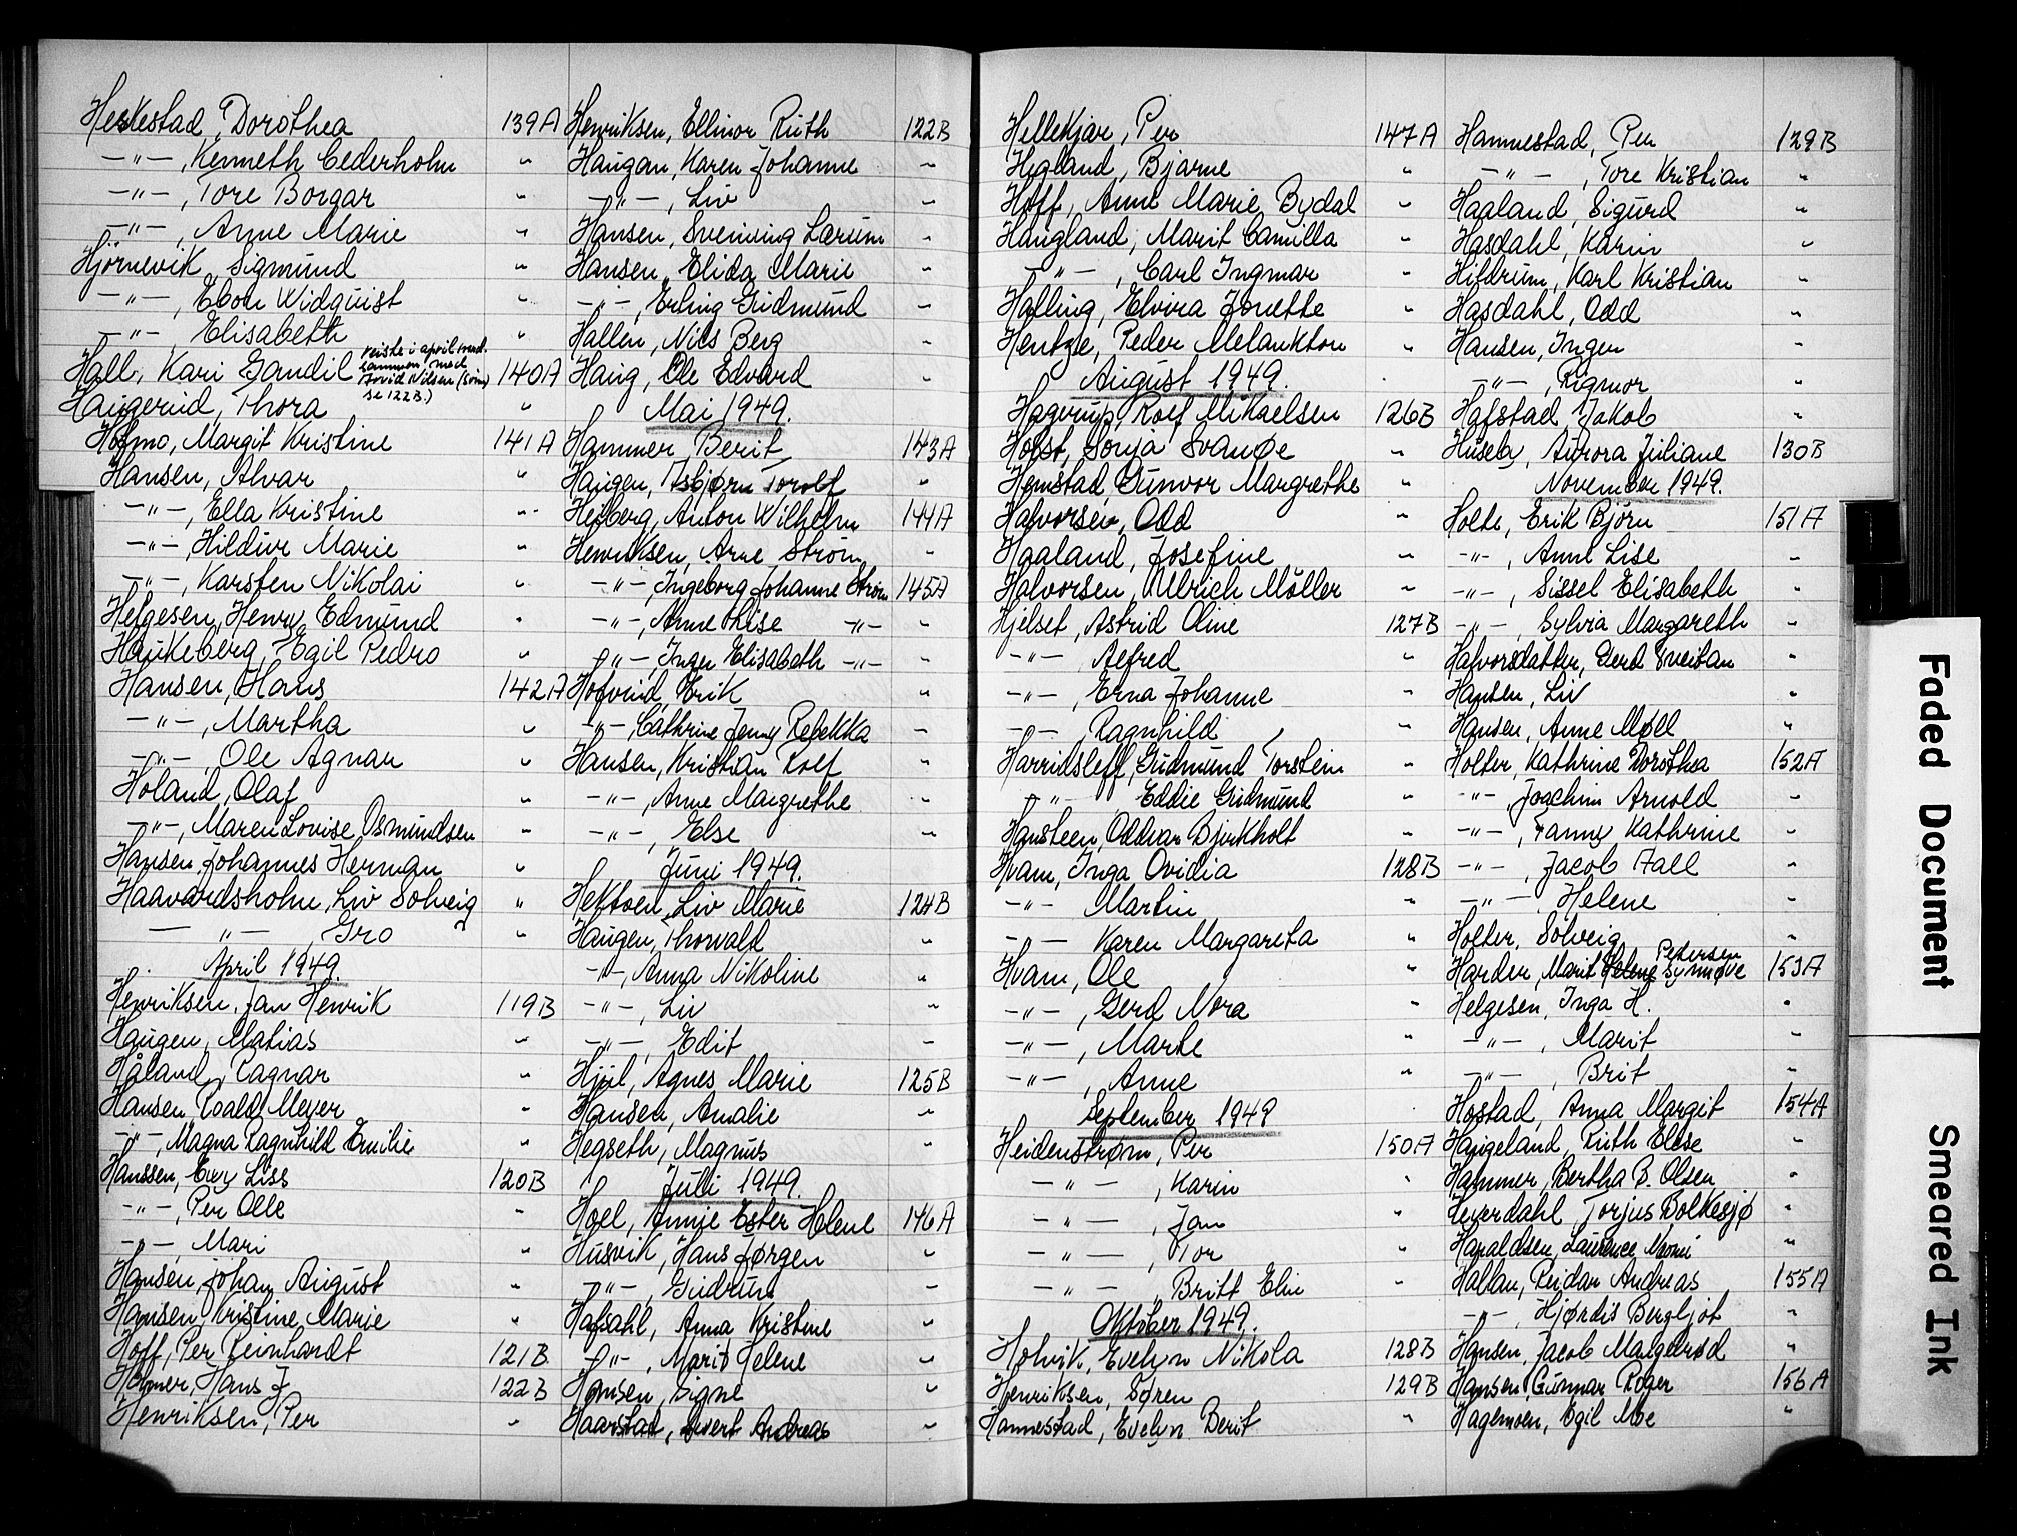 Heskestad, Dorothea 139A
—"—, Kenneth Cederholm "
—"—, Tore Borgar "
—"—, Anne Marie "
Hjörnevik, Sigmund "
—"—, Ebon Widquist "
—"— Elisabeth "
Hall, Kari Gandil reiste i april mnd. sammen med Arvid Nilsen (sönn) se 122B.) 140A
Haugerud, Thora "
Holmo, Margit Kristine 141A
Hansen, Alvar "
—"—, Ella Kristine "
—"—, Hildur Marie "
—"—, Karsten Nikolai "
Helgesen, Henry Edmund "
Haukeberg, Egil Pedro "
Hansen, Hans 142A
—"—, Martha "
—"—, Ole Agnar "
Holand, Olaf "
—"—, Maren Lovise Osmundsen "
Hansen, Johannes Herman "
Haavardsholm, Liv Solveig "
— " —, Gro "
April 1949.
Henriksen, Jan Henrik 119B
Haugen, Matias "
Håland, Ragnar "
Hansen, Roald Meyer "
—"—, Magna Ragnhild Emilie "
Hanssen, Evy Liss 120B
—"—, Per Olle "
—"—, Mari "
Hansen, Johan August "
Hansen, Kristine Marie "
Hoff, Per Reinhardt 121B
Holmer, Hans J. 122B
Henriksen, Per "
Henriksen, Ellinor Ruth 122B
Haugan, Karen Johanne "
—"—, Liv "
Hansen, Svenning Lærum "
Hansen, Elida Marie "
—"—, Erling Gudmund "
Hallen, Nils Berg "
Haug, Ole Edvard "
Mai 1949.
Hammer, Berit 143A
Haugen, Asbjørn Torolf "
Heiberg, Anton Wilhelm 144A
Henriksen, Arne Strøm "
—"—, Ingeborg Johanne Strøm 145A
—"—, Anne Lise —"— "
—"—, Inger Elisabeth —"— "
Hofvind, Erik "
—"—, Cathrine Jenny Rebekka "
Hansen, Kristian Rolf "
—"—, Anne Margrethe "
—"—, Else "
Juni 1949.
Heltoen, Liv Marie 124B
Haugen, Thorvald "
—"—, Anna Nikoline "
—"—, Liv "
—"—, Edit "
Hjul, Agnes Marie 125B
Hansen, Amalie "
Hegseth, Magnus "
Juli 1949.
Hoel, Annie Ester Helene 146A
Husvik, Hans Jørgen "
—"—, Gudrun "
Hafsahl, Anna Kristine "
—"—, Marit Helene "
Hansen, Signe "
Haarstad, Sivert Andreas "
Hellekjær, Per 147A
Hegland, Bjarne "
Hoff, Anne Marie Bydal "
Haugland, Marit Camilla "
—"—, Carl Ingmar "
Halling, Elvira Jorette "
Hentze, Peder Melankton "
August 1949.
Hagerup, Rolf Mikaelsen 126B
Holst, Sonja Svanøe "
Hemstad, Gunvor Margrethe "
Halvorsen, Odd "
Haaland, Josefine "
Halvorsen, Ullrich Möller "
Hjelset, Astrid Oline 127B
—"— Alfred "
—"—, Erna Johanne "
—"— Ragnhild "
Harridsleff, Gudmund Torstein "
—"— Eddie Gudmund "
Hansteen, Oddvar Bjerkholt "
Hvam, Inga Ovidia 128B
—"— Martin "
—"— Karen Margareta "
Hvam, Ole "
—"—, Gerd Nora "
—"—, Marte "
—"—, Anne "
September 1949
Heidenstrøm, Per 150A
—"—, Karin "
—"—, Jan "
—"—, Tor "
—"—, Britt Elin "
Oktober 1949.
Holvik, Evelyn Nikola 128B
Henriksen, Søren 129B
Hannestad, Evelyn Berit "
Hannestad, Per 129B
—"—, Tore Kristian "
Haaland, Sigurd "
Hasdahl, Karin "
Hildrum, Karl Kristian "
Hasdahl, Odd "
Hansen, Inger "
—"—, Rigmor "
Hafstad, Jakob "
Huseby, Aurora Juliane 130B
November 1949.
Holte, Erik Björn 151A
—"—, Anne Lise "
—"—, Sissel Elisabeth "
—"—, Sylvia Margareth "
Halvorsdatter, Gerd Sveitan "
Hansen, Liv "
Hansen, Anne Møll "
Holter, Kathrine Dorothea 152A
—"—, Joachim Arnold "
—"—, Fanny Kathrine "
—"—, Jacob Aall "
—"—, Helene "
Holter, Solveig "
Harder, Marit Helene Synnøve Pedersen 153A
Helgesen, Inga H. "
—"—, Marit "
—"—, Brit "
Hostad, Anna Margit 154A
Haugeland, Ruth Elise "
Hammer, Bertha B. Olsen "
Leverdahl, Torjus Bolkesjø "
Haraldsen, Laurence Naomi "
Hallan, Reidar Andreas 155A
—"—, Hjørdis Bergljot "
Hansen, Jacob Magelrød "
Hansen, Gunnar Roger 156A
Hagemoen, Egil Moe "
Faded Document
Smeared Ink